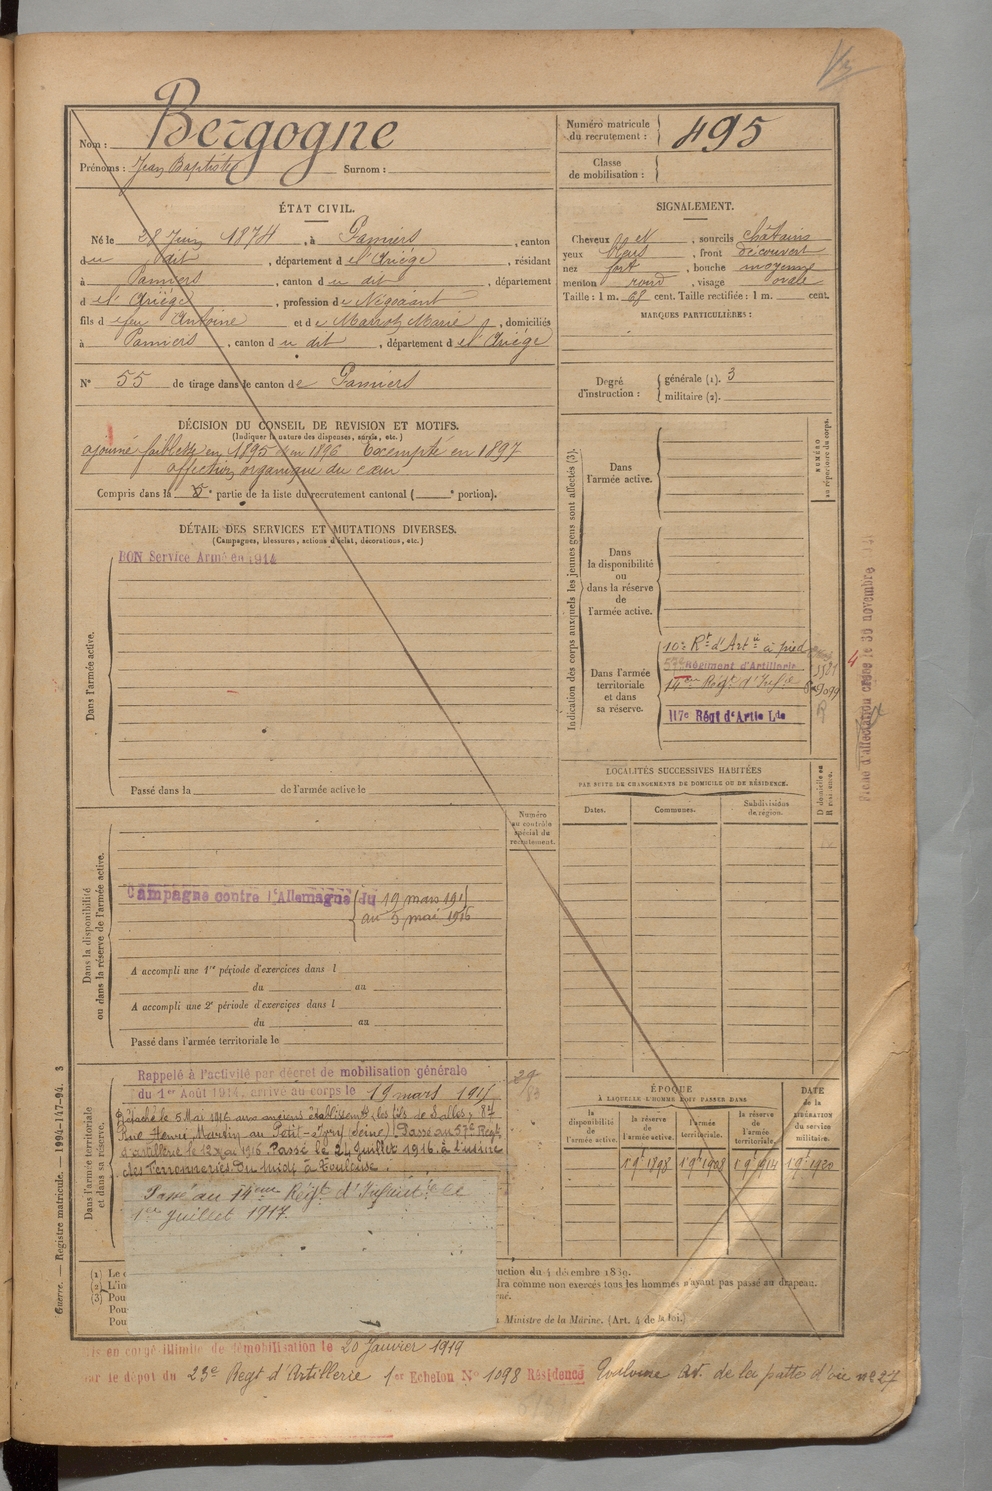 Nom : Bergogne
Prénoms : Jean Baptiste Surnom :
Numéro matricule du recrutement : 495
Classe de mobilisation :
ÉTAT CIVIL.
Né le 28 Juin 1874, à Pamiers, canton
du dit, département de l'Ariège, résidant
à Pamiers, canton du dit, département
de l'Ariège, profession de Négociant
fils de feu Antoine et de Marrot Marie, domiciliés
à Pamiers, canton du dit, département de l'Ariège
N° 55 de tirage dans le canton de Pamiers
SIGNALEMENT.
Cheveux et, sourcils châtains
yeux bleus, front découvert
nez fort, bouche moyenne
menton rond, visage ovale
Taille : 1 m. 68 cent. Taille rectifiée : 1 m. cent.
MARQUES PARTICULIÈRES :
Degré d'instruction : générale (1). 3
militaire (2).
DÉCISION DU CONSEIL DE REVISION ET MOTIFS.
(Indiquer la nature des dispenses, sursis, etc.)
ajourné faiblesse en 1895 et en 1896 Exempté en 1897
affection organique du cœur
Compris dans la 5e partie de la liste du recrutement cantonal ( e portion).
DÉTAIL DES SERVICES ET MUTATIONS DIVERSES.
(Campagnes, blessures, actions d'éclat, décorations, etc.)
BON Service Armé en 1914
Dans l'armée active.
Passé dans la de l'armée active le
Indication des corps auxquels les jeunes gens sont affectés (3).
NUMÉRO au répertoire du corps.
Dans l'armée active.
Dans la disponibilité ou dans la réserve de l'armée active.
Dans l'armée territoriale et dans sa réserve.
10e Rt d'Artie à pied
57e Régiment d'Artillerie
14me Régt d'Infie
117e Régt d'Artie Lde
Fiche d'affectation créée le 30 novembre
LOCALITÉS SUCCESSIVES HABITÉES
PAR SUITE DE CHANGEMENTS DE DOMICILE OU DE RÉSIDENCE.
Dates. Communes. Subdivisions de région. D domicile ou R résidence.
Numéro au contrôle spécial du recrutement.
Dans la disponibilité ou dans la réserve de l'armée active.
Campagne contre l'Allemagne du 19 mars 1915
au 5 mai 1916
A accompli une 1re période d'exercices dans l
du au
A accompli une 2e période d'exercices dans l
du au
Passé dans l'armée territoriale le
Dans l'armée territoriale et dans sa réserve.
Rappelé à l'activité par décret de mobilisation générale
du 1er Août 1914, arrivé au corps le 19 mars 1915
Détaché le 5 Mai 1916 aux anciens établissents les fils de Salles, 87
Rue Henri Mardin au Petit-Ivry (Seine) Passé au 57e Régt
d'artillerie le 12 mai 1916. Passé le 24 juillet 1916 à l'usine
des Ferronneries Du Midi à Toulouse.
Passé au 14eme Régt d'Infanterie le
1er juillet 1917.
ÉPOQUE
À LAQUELLE L'HOMME DOIT PASSER DANS
la disponibilité de l'armée active. la réserve de l'armée active. l'armée territoriale. la réserve de l'armée territoriale.
DATE de la LIBÉRATION du service militaire.
1 9e 1898 1 9e 1908 1 9e 1914 1 9e 1920
(1) Le
(2) L'in
(3) Pou
Pou
Pou
uction du 4 décembre 1889.
dra comme non exercés tous les hommes n'ayant pas passé au drapeau.
Ministre de la Marine. (Art. 4 de la loi.)
Guerre. — Registre matricule. — 1994-147-94. 3
is en congé illimité de démobilisation le 20 Janvier 1919
par le dépôt du 23e Régt d'Artillerie 1er Echelon N° 1098 Résidence Toulouse Av. de la patte d'oie n° 27